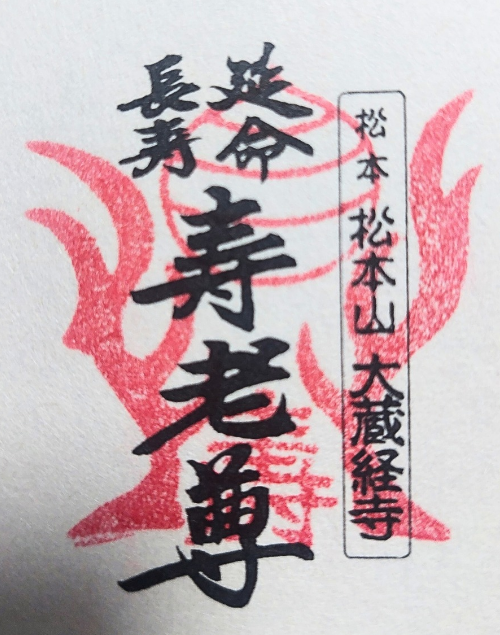 松本 松本山 大蔵経寺
延命
長寿
寿老尊
寿